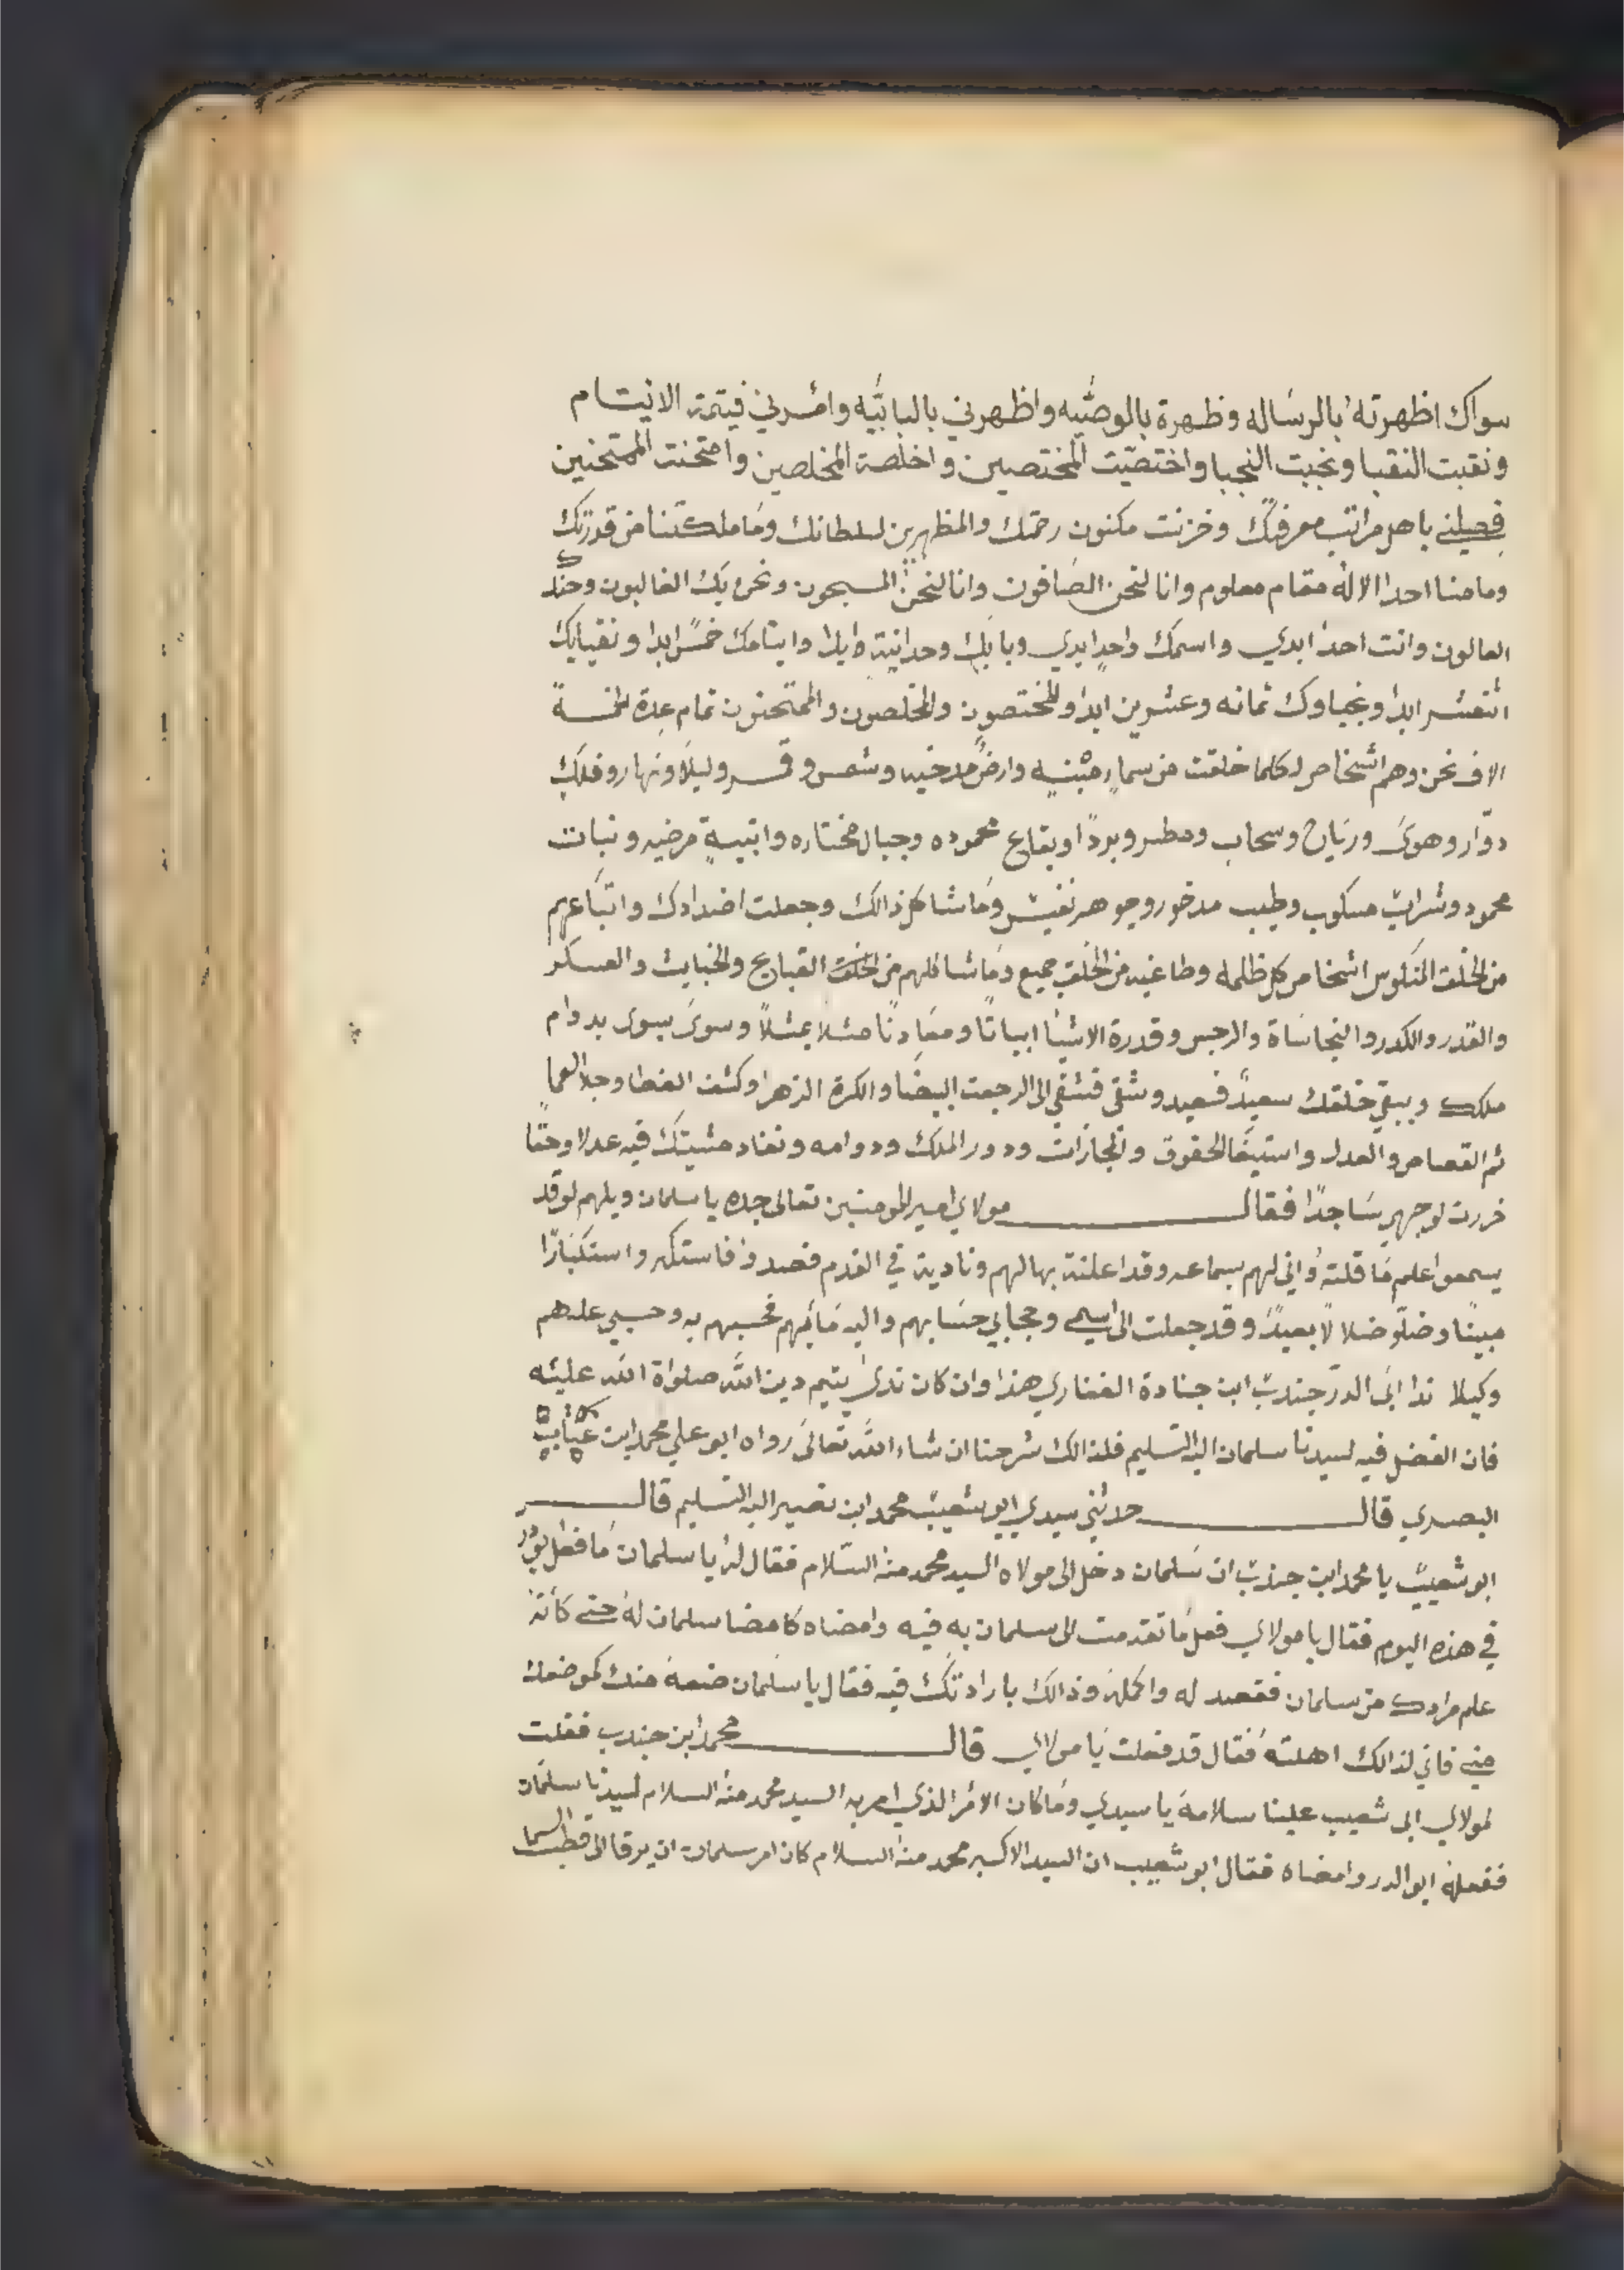 سواك اظهرته بالرساله وظهرة بالوصيه واظهرني بالبابيه وامرني فيتمة الايتام
ونقبت النقبا ونجبت النجبا واختصيت المختصين واخلصة المخلصين وامتحنت الممتحنين
باهل مراتب معرفتك وخزنت مكنون رحمتك والمظهرين لسلطانك وما ملكتنا من قدرتك
وما منا احدا الا له مقام معلوم وانا لنحن الصافون وانا لنحن المسبحون ونحن بك الغالبون وحندك
العالون وانت احد ابدي واسمك واحد ابدي وبابك وحدانية وايتامك خمس ابدا ونقبايك
اثنعشر ابدا ونجباوك ثمانه وعشرين ابدا والمختصون والمخلصون والممتحنون تمام عدة الخمسة
الاف نحن وهم اشخاص لكلما خلقت من سماء مبنيه وارض مدحيه وشمس وقمر وليلا ونهار وفلك
دوار وهوى ورياح وسحاب ومطر وبردا وبقاع محموده وجبال مختاره وابنية مرضيه ونبات
محمود وشراب مسكوب وطيب مدخور وجوهر نفيس وما شاكل ذالك وجعلت اضدادك واتباعهم
من الخلق المنكوس اشخاص كل ظلمه وطاغيه من الخلق جميع وما شاكلهم من الخلق القبايح والخبايث والعسكر
والقدر والكدر والنجاساة والرجس وقدرة الاشيا ابياتا ومعادنا مثلا بمثلا وسوى بسوى بدوام
ملكك ويبقي خلقك سعيد فسعيد وشقي فشقي الى الرجعت البيضا والكرة الزهرا وكشف الغطا وجلا العما
ثم القصاص والعدل واستيفا الحقوق والمجازات ودور الملك ودوامه ونفاد مشيتك فيه عدلا وحقا
خررت لوجهي ساجدا فقال مولاي امير المومنين تعالى جده يا سلمان ويلهم لو قد
يسمعوا علم ما قلته واني لهم بسماعه وقد اعلنة بها لهم ونادية في القدم فصدوا فاستكبروا استكبارا
مبينا وضلو ضلالا بعيدا وقد جعلت الى اسمي وحجابي حسابهم واليه مائبهم فحسبهم به وحسبي عليهم
وكيلا ندا ابى الدر جندب ابن جنادة الغفاري هذا وان كان ندى يتيم دين الله صلواة الله عليه
فان الفضل فيه لسيدنا سلمان اليه التسليم فلذالك شرحنا ان شاء الله تعالى رواه ابو علي محمد ابن
البصري قال حدثني سيدي ابو شعيب محمد ابن نصير اليه التسليم قال
ابو شعيب يا محمد ابن جندب ان سلمان دخل الى مولاه السيد محمد منه السلام فقال له يا سلمان ما فعل
في هذه اليوم فقال يا مولاي فعل ما تقدمت الى سلمان به فيه وامضاه كامضا سلمان له حتى كأنه
علم مرادك من سلمان فقصد له واكمله وذالك بارادتك فيه فقال يا سلمان ضعه منك كموضعك
مني فاني لذالك اهلته فقال قد فعلت يا مولاي قال محمد ابن جندب فقلت
لمولاي ابى شعيب علينا سلامة يا سيدي وما كان الامر الذي امر به السيد محمد منه السلام لسيدنا سلمان
ففعله ابو الدر وامضاه فقال ابو شعيب ان السيد الاكبر محمد منه السلام كان امر سلمان ان يرقا الى قطب السما